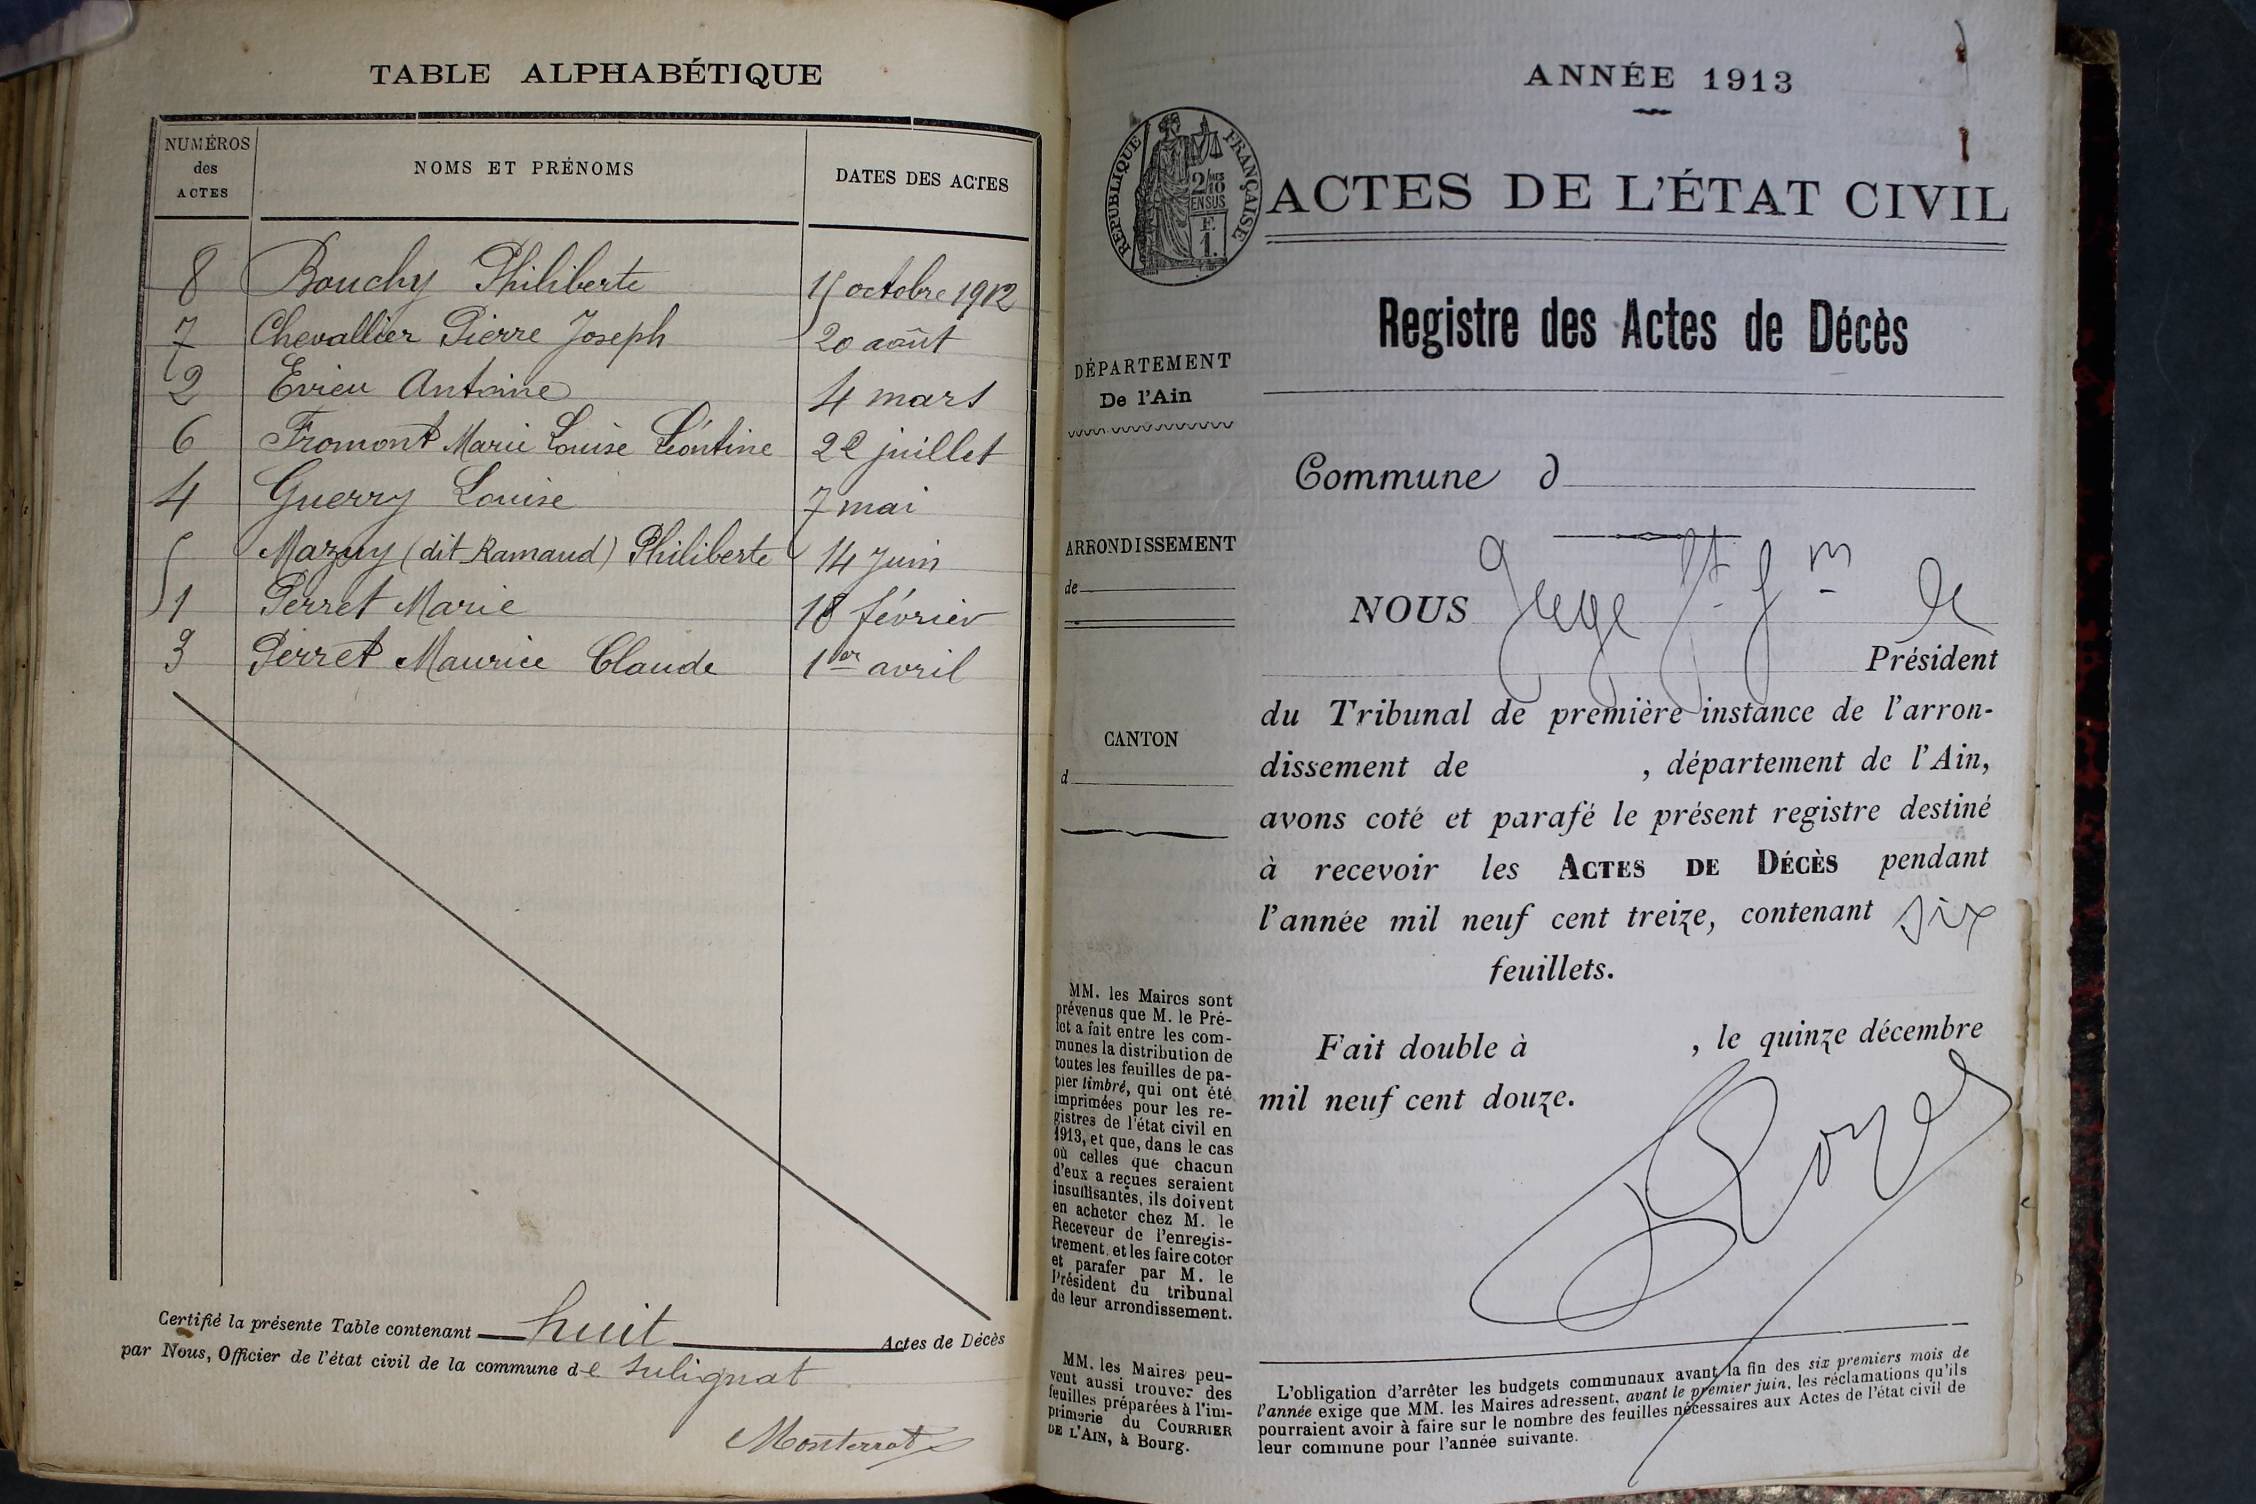 TABLE ALPHABÉTIQUE
NUMÉROS des ACTES
NOMS ET PRÉNOMS
DATES DES ACTES
8 Bouchy Philiberte 15 octobre 1912
7 Chevallier Pierre Joseph 20 août
2 Evieu Antoine 4 mars
6 Fromont Marie Louise Léontine 22 juillet
4 Guerry Louise 7 mai
5 Mazuy (dit Ramaud) Philiberte 14 juin
1 Perret Marie 18 février
3 Perret Maurice Claude 1er avril
Certifié la présente Table contenant huit Actes de Décès
par Nous, Officier de l'état civil de la commune de Sulignat
Monterrat
ANNÉE 1913
RÉPUBLIQUE FRANÇAISE
2/10 EN SUS
F.
1.
ACTES DE L'ÉTAT CIVIL
Registre des Actes de Décès
DÉPARTEMENT
De l'Ain
Commune d
ARRONDISSEMENT
de
NOUS Juge de
Président
du Tribunal de première instance de l'arron-
dissement de , département de l'Ain,
avons coté et parafé le présent registre destiné
à recevoir les ACTES DE DÉCÈS pendant
l'année mil neuf cent treize, contenant six
feuillets.
Fait double à , le quinze décembre
mil neuf cent douze.
CANTON
d
MM. les Maires sont
prévenus que M. le Pré-
fet a fait entre les com-
munes la distribution de
toutes les feuilles de pa-
pier timbré, qui ont été
imprimées pour les re-
gistres de l'état civil en
1913, et que, dans le cas
où celles que chacun
d'eux a reçues seraient
insuffisantes, ils doivent
en acheter chez M. le
Receveur de l'enregis-
trement, et les faire coter
et parafer par M. le
Président du tribunal
de leur arrondissement.
MM. les Maires peu-
vent aussi trouver des
feuilles préparées à l'im-
primerie du COURRIER
DE L'AIN, à Bourg.
L'obligation d'arrêter les budgets communaux avant la fin des six premiers mois de
l'année exige que MM. les Maires adressent, avant le premier juin, les réclamations qu'ils
pourraient avoir à faire sur le nombre des feuilles nécessaires aux Actes de l'état civil de
leur commune pour l'année suivante.